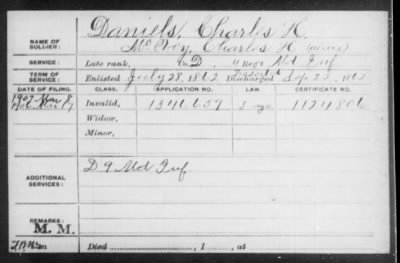 NAME OF SOLDIER: Daniels, Charles H.
McVey, Charles H. (alias)
SERVICE: Late rank, Co. D, 11 Reg't Md Inf
TERM OF SERVICE: Enlisted July 28, 1862 Discharged Sep 22,
DATE OF FILING. CLASS. APPLICATION NO. LAW. CERTIFICATE NO.
1907 Mar 8 Invalid, 1341659 1124806
Widow,
Minor,
ADDITIONAL SERVICES: D 9 Md Inf
REMARKS: M. M.
Died , 1 , at